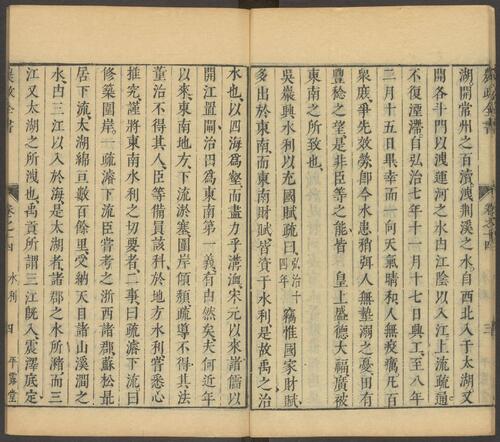 農政全書
卷之十四
三
湖開常州之百瀆洩荊溪之水自西北入于太湖又
開各斗門以洩運河之水由江陰以入江上流疏通
不復湮滯自弘治七年十一月十七日興工至八年
二月十五日畢幸而一向天氣晴和人無疫癘凡百
衆庶爭先效勞即今水患稍弭人無墊溺之憂田有
豐稔之望是非臣等之能皆 皇上盛德大福廣被
東南之所致也
吳巖興水利以充國賦疏曰弘治十四年竊惟國家財賦
多出於東南而東南財賦皆資于水利是故禹之治
水也以四海爲壑而盡力乎溝洫宋元以來諸儒以
開江置閘治田爲東南第一義有由然矣夫何近年
以來東南地方下流淤塞圍岸傾頹疏導不得其法
董治不得其人臣等備員該科於地方水利嘗悉心
推究謹將東南水利之切要者二事曰疏濬下流曰
修築圍岸一疏濬下流臣嘗考之浙西諸郡蘇松最
居下流太湖綿亘數百餘里受納天目諸山溪澗之
水由三江以入於海是太湖者諸郡之水所瀦而三
江又太湖之所洩也禹貢所謂三江旣入震澤底定
農政全書
卷之十四
水利
四
平露堂